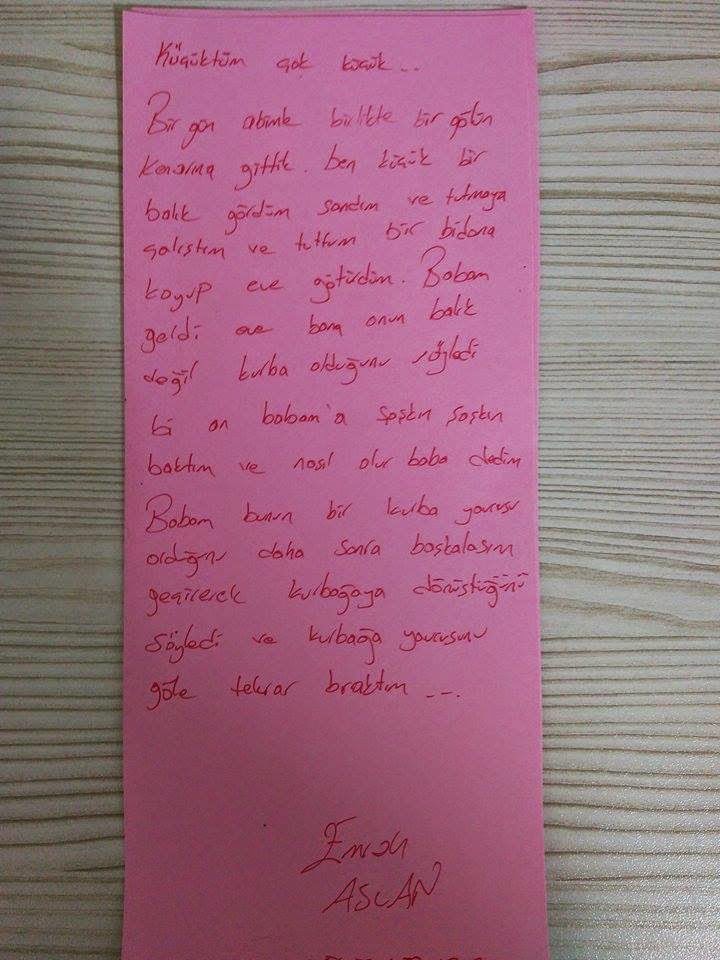 Küçüktüm çok küçük...
Bir gün abimle birlikte bir gölün
kenarına gittik. ben küçük bir
balık gördüm sandım ve tutmaya
çalıştım ve tuttum bir bidona
koyup eve götürdüm. Babam
geldi eve bana onun balık
değil kurba olduğunu söyledi
bi an babam'a şaşkın şaşkın
baktım ve nasıl olur baba dedim
Babam bunun bir kurba yavrusu
orduğunu daha sonra başkalaşım
geçirerek kurbağaya dönüştüğünü
söyledi ve kurbağa yavrusunu
göle tekrar bıraktım ---.
ASLAN